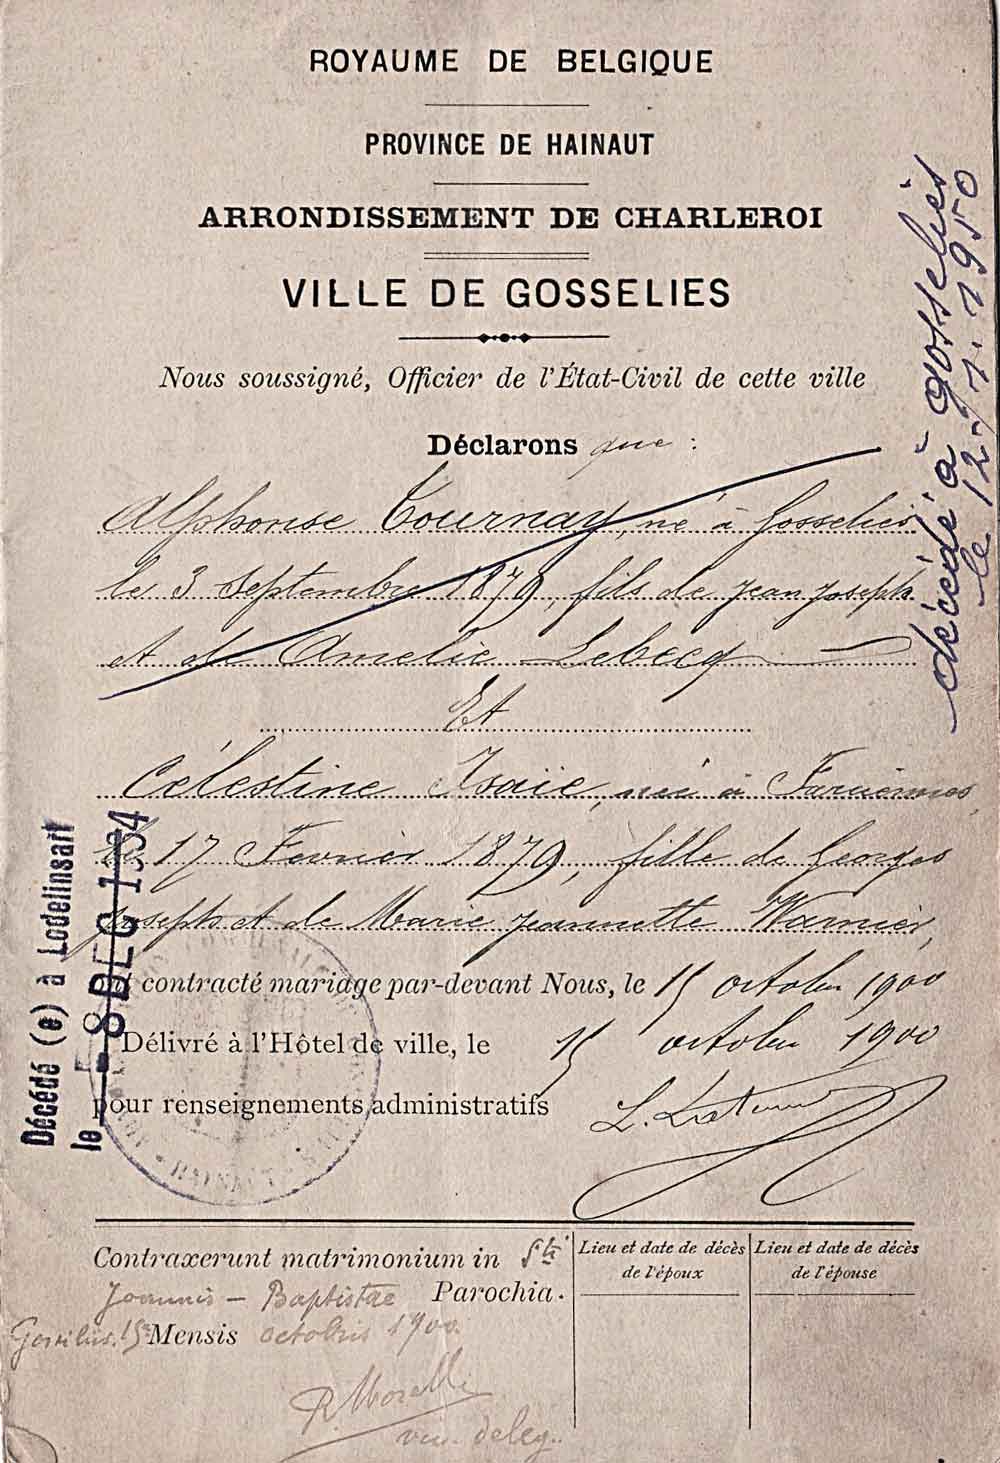 ROYAUME DE BELGIQUE
PROVINCE DE HAINAUT
ARRONDISSEMENT DE CHARLEROI
VILLE DE GOSSELIES
Nous soussigné, Officier de l'État-Civil de cette ville
Déclarons que :
Alphonse Tournay, né à Gosselies
le 3 Septembre 1879, fils de Jean Joseph
et de Amelie Lebecq
Et
Célestine Isaïe, née à Farciennes,
le 17 Fevrier 1879, fille de Georges
Joseph et de Marie Jeannette Warnier,
contracté mariage par-devant Nous, le 15 octobre 1900
Délivré à l'Hôtel de ville, le 15 octobre 1900
pour renseignements administratifs
décédé à gosselies
le 12-1-1950
Décédé (e) à Lodelinsart
le - 8 DEC 1934
HAINAUT
Contraxerunt matrimonium in Sti
Joannis - Baptistae Parochia.
Gosselies 15 Mensis octobris 1900.
vic. deleg.
Lieu et date de décès
de l'époux
Lieu et date de décès
de l'épouse